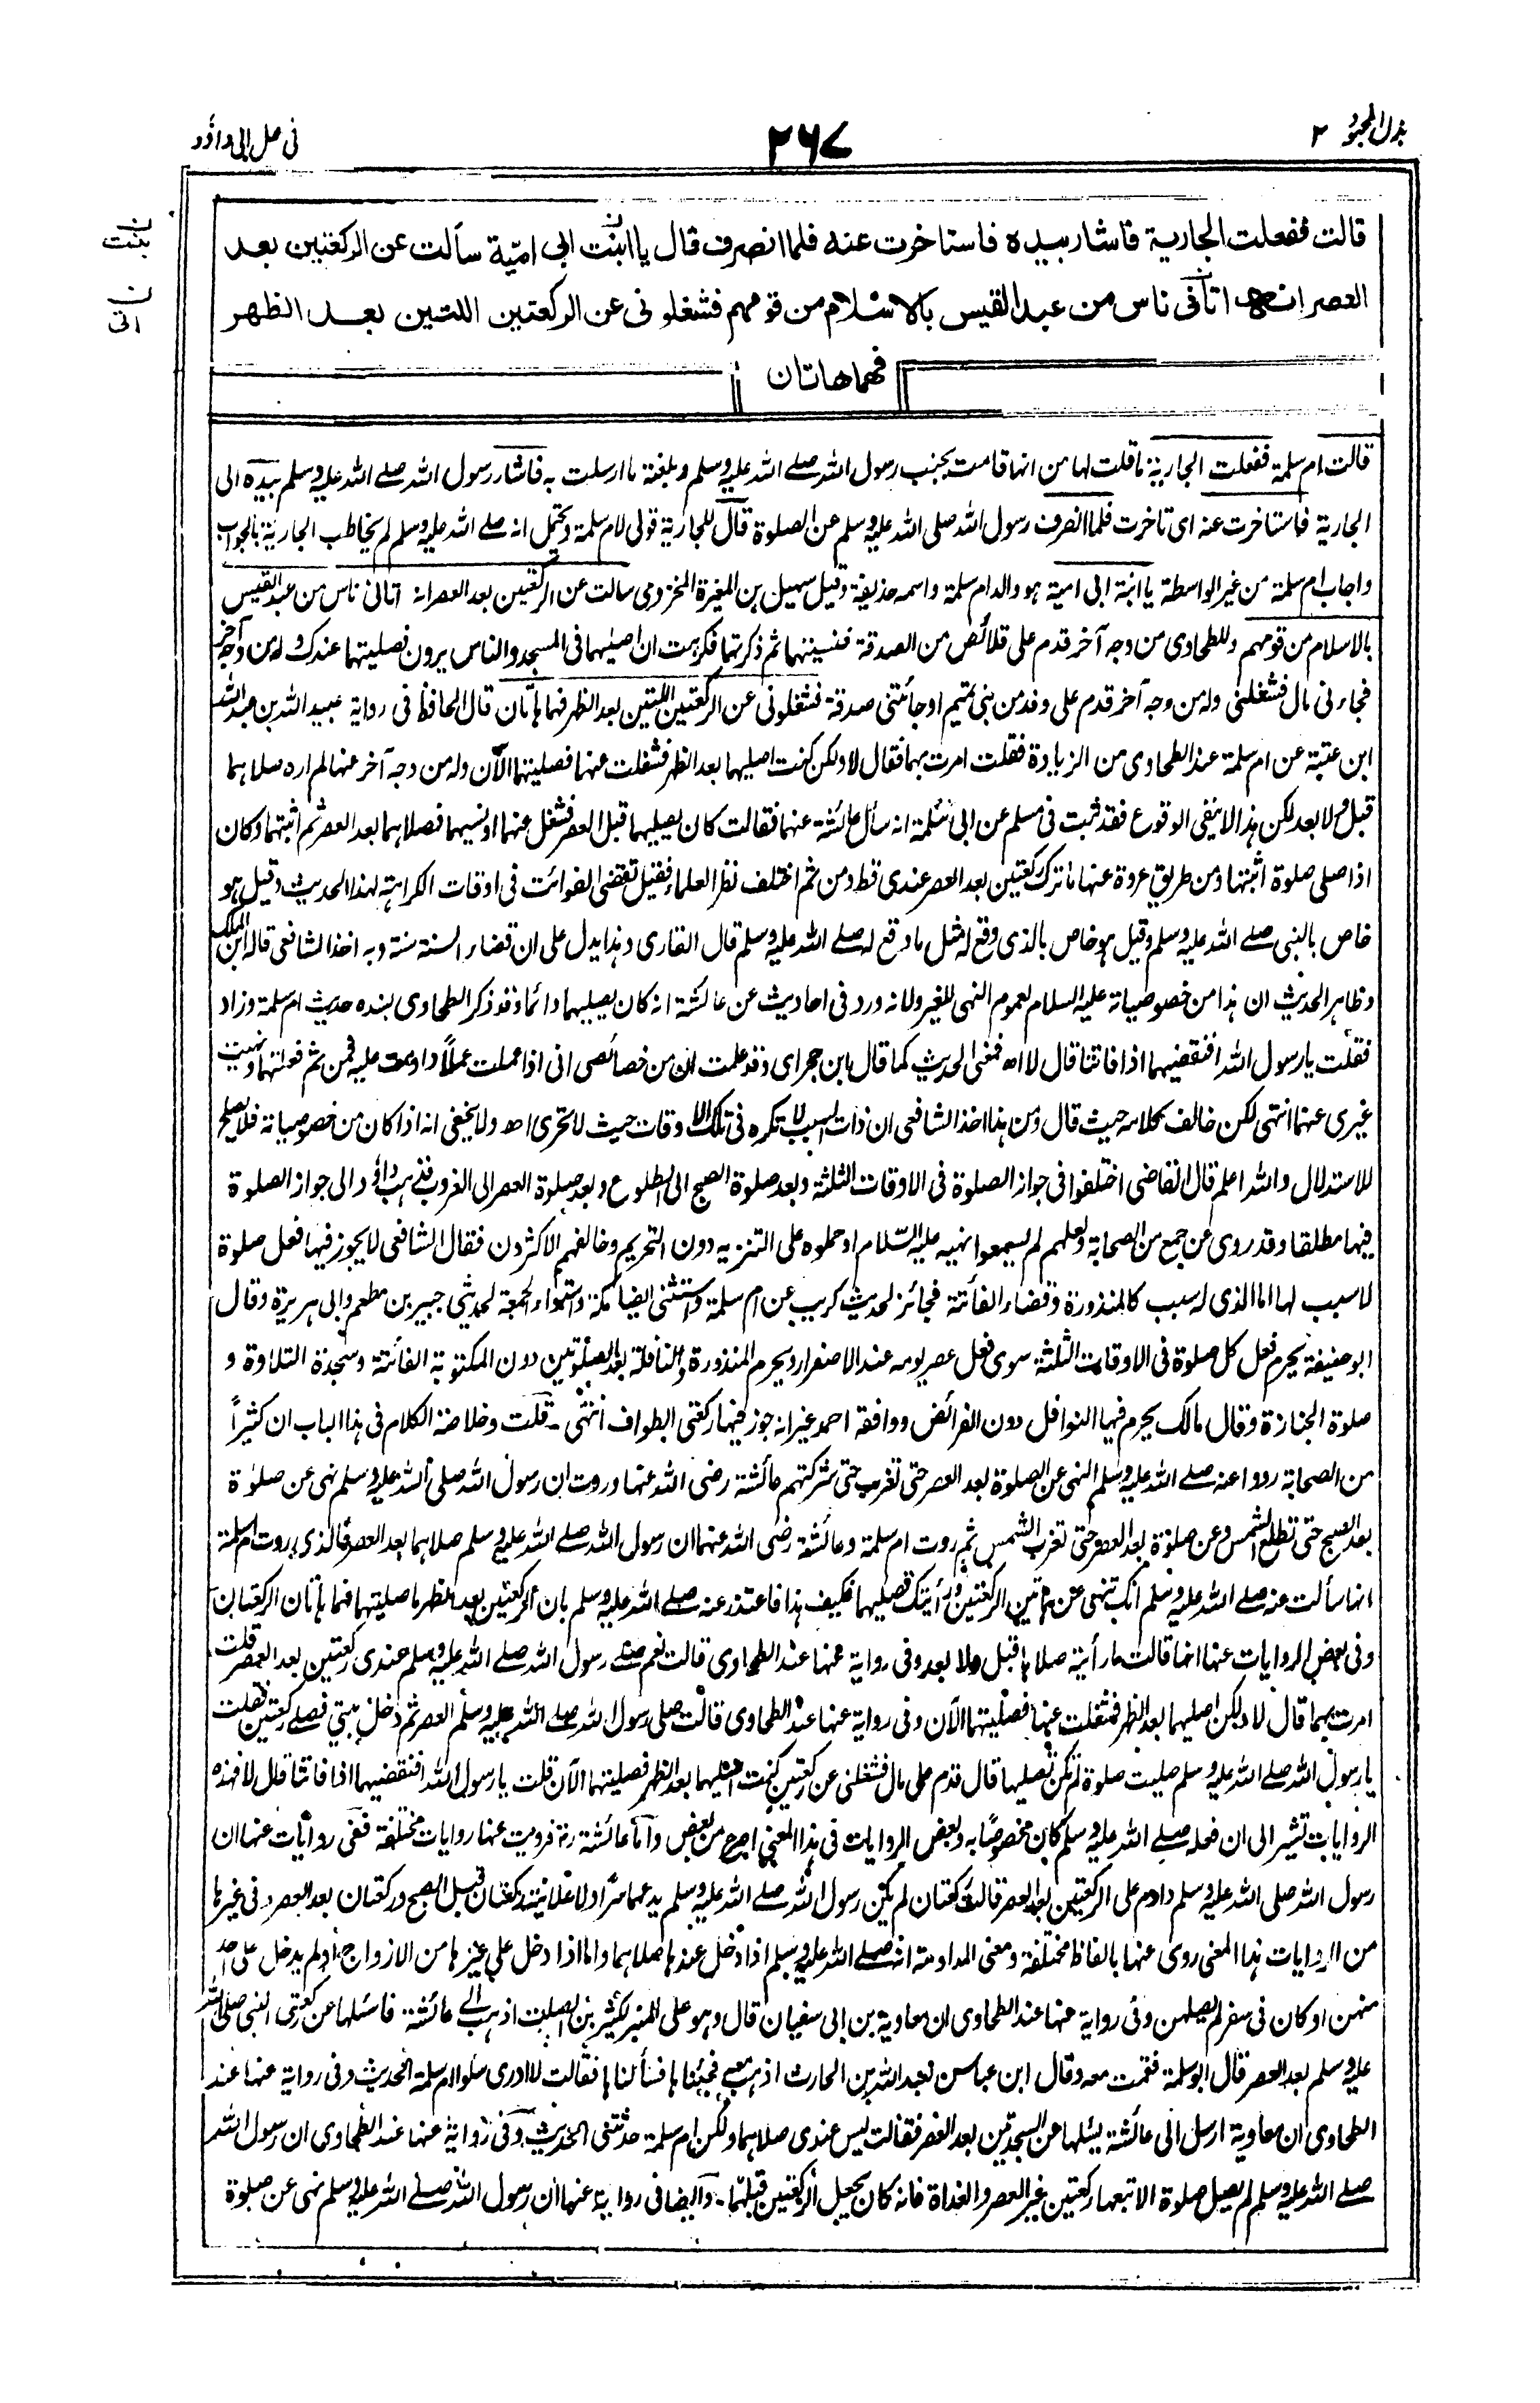 بذل المجهود ٢
٢٦٧
فى حل ابى داؤد
قالت ففعلت الجارية فاشار بيده فاستاخرت عنه فلما انصرف قال يا ابنت ابى امية سألت عن الركعتين بعد
ن بنت
العصر انه اتانى ناس من عبد القيس بالاسلام من قومهم فشغلونى عن الركعتين اللتين بعد الظهر
ن اتى
فهما هاتان
قالت ام سلمة ففعلت الجارية ما قلت لها من انها قامت بجنب رسول الله صلے الله عليه وسلم وبلغته ما ارسلت به فاشار رسول الله صلے الله عليه وسلم بيده الى
الجارية فاستاخرت عنه اى تاخرت فلما انصرف رسول الله صلى الله عليه وسلم عن الصلوة قال للجارية قولى لام سلمة ويحتمل انه صلے الله عليه وسلم لم يخاطب الجارية بالجواب
واجاب ام سلمة من غير الواسطة يا ابنة ابى امية هو والد ام سلمة واسمه حذيفة وقيل سهيل بن المغيرة المخزومى سالت عن الركعتين بعد العصر انه اتانى ناس من عبد القيس
بالاسلام من قومهم وللطحاوى من وجه آخر قدم على قلائص من الصدقة فنسيتهما ثم ذكرتهما فكرهت ان اصليهما فى المسجد والناس يرون فصليتهما عندك وله من وجه آخر
فجاءنى مال فشغلنى وله من وجه آخر قدم على وفد من بنى تميم او جائتنى صدقة فشغلونى عن الركعتين اللتين بعد الظهر فهما هاتان قال الحافظ فى رواية عبيد الله بن عبد الله
ابن عتبة عن ام سلمة عند الطحاوى من الزيادة فقلت امرت بهما فقال لا ولكن كنت اصليهما بعد الظهر فشغلت عنهما فصليتهما الآن وله من وجه آخر عنها لم اره صلاهما
قبل ولا بعد لكن هذا لا ينفى الوقوع فقد ثبت فى مسلم عن ابى سلمة انه سأل عائشة عنهما فقالت كان يصليهما قبل العصر فشغل عنهما او نسيهما فصلاهما بعد العصر ثم اثبتهما وكان
اذا صلى صلوة اثبتها ومن طريق عروة عنها ما ترك ركعتين بعد العصر عندى قط ومن ثم اختلف نظر العلماء فقيل تقضى الفوائت فى اوقات الكراهة لهذا الحديث وقيل هو
خاص بالنبى صلے الله عليه وسلم وقيل هو خاص بالذى وقع له مثل ما وقع له صلے الله عليه وسلم قال القارى وهذا يدل على ان قضاء السنة سنة وبه اخذ الشافعى قاله ابن الملك
وظاهر الحديث ان هذا من خصوصياته عليه السلام لعموم النهى للغير ولانه ورد فى احاديث عن عائشة انه كان يصليهما دائما وقد ذكر الطحاوى بسنده حديث ام سلمة وزاد
فقلت يا رسول الله افنقضيهما اذا فاتتا قال لا اه فمعنى الحديث كما قال ابن حجر اى وقد علمت ان من خصائصى انى اذا عملت عملاً داومت عليه فمن ثم فعلتهما ونهيت
غيرى عنهما انتهى لكن خالف كلامه حيث قال ومن هذا اخذ الشافعى ان ذات السبب لا تكره فى تلك الاوقات حيث لا تحرى اه ولا يخفى انه اذا كان من خصوصياته فلا يصلح
للاستدلال والله اعلم قال القاضى اختلفوا فى جواز الصلوة فى الاوقات الثلثة وبعد صلوة الصبح الى الطلوع وبعد صلوة العصر الى الغروب فذهب داؤد الى جواز الصلوة
فيها مطلقا وقد روى عن جمع من الصحابة ولعلهم لم يسمعوا نهيه عليه السلام او حملوه على التنزيه دون التحريم وخالفهم الاكثرون فقال الشافعى لا يجوز فيها فعل صلوة
لا سبب لها اما الذى له سبب كالمنذورة وقضاء الفائتة فجائز لحديث كريب عن ام سلمة واستثنى ايضا مكة واستواء الجمعة لحديثى جبير بن مطعم وابى هريرة وقال
ابو حنيفة يحرم فعل كل صلوة فى الاوقات الثلثة سوى فعل عصر يومه عند الاصفرار ويحرم المنذورة والنافلة بعد الصلوتين دون المكتوبة الفائتة وسجدة التلاوة و
صلوة الجنازة وقال مالك يحرم فيها النوافل دون الفرائض ووافقه احمد غير انه جوز فيها ركعتى الطواف انتهى - قلت وخلاصة الكلام فى هذا الباب ان كثيراً
من الصحابة رووا عنه صلے الله عليه وسلم النهى عن الصلوة بعد العصر حتى تغرب حتى شركتهم عائشة رضى الله عنها وروت ان رسول الله صلى الله عليه وسلم نهى عن صلوة
بعد الصبح حتى تطلع الشمس وعن صلوة بعد العصر حتى تغرب الشمس ثم روت ام سلمة وعائشة رضى الله عنهما ان رسول الله صلے الله عليه وسلم صلاهما بعد العصر فالذى روت ام سلمة
انها سألت عنه صلے الله عليه وسلم انك تنهى عن هاتين الركعتين ورأيتك تصليهما فكيف هذا فاعتذر عنه صلے الله عليه وسلم بان الركعتين بعد الظهر ما صليتهما فهما هاتان الركعتان
وفى بعض الروايات عنها انها قالت ما رأيته صلاها قبل ولا بعد وفى رواية عنها عند الطحاوى قالت نعم صلے رسول الله صلے الله عليه وسلم عندى ركعتين بعد العصر قلت
امرت بهما قال لا ولكن اصليهما بعد الظهر فشغلت عنهما فصليتهما الآن وفى رواية عنها عند الطحاوى قالت صلى رسول الله صلے الله عليه وسلم العصر ثم دخل بيتى فصلے ركعتين فقلت
يا رسول الله صلے الله عليه وسلم صليت صلوة لم تكن تصليها قال قدم على مال فشغلنى عن ركعتين كنت اصليهما بعد الظهر فصليتهما الآن قلت يا رسول الله افنقضيهما اذا فاتتا قال لا فهذه
الروايات تشير الى ان فعله صلے الله عليه وسلم كان مخصوصًا به وبعض الروايات فى هذا المعنى اصرح من بعض واما عائشة رضـ فرويت عنها روايات مختلفة ففى روايات عنها ان
رسول الله صلى الله عليه وسلم داوم على الركعتين بعد العصر قالت ركعتان لم يكن رسول الله صلے الله عليه وسلم يدعهما سرًا ولا علانية ركعتان قبل الصبح وركعتان بعد العصر وفى غيرها
من الروايات هذا المعنى روى عنها بالفاظ مختلفة ومعنى المداومة انه صلے الله عليه وسلم اذا دخل عندها صلاهما واما اذا دخل على غيرها من الازواج او لم يدخل على احد
منهن او كان فى سفر لم يصلهن وفى رواية عنها عند الطحاوى ان معاوية بن ابى سفيان قال وهو على المنبر لكثير بن الصلت اذهب الى عائشة فاسئلها عن ركعتى النبى صلى الله
عليه وسلم بعد العصر قال ابو سلمة فقمت معه وقال ابن عباس لعبد الله بن الحارث اذهب معه فجئناها فسألناها فقالت لا ادرى سلوا ام سلمة الحديث وفى رواية عنها عند
الطحاوى ان معاوية ارسل الى عائشة يسئلها عن السجدتين بعد العصر فقالت ليس عندى صلاهما ولكن ام سلمة حدثتنى الحديث وفى رواية عنها عند الطحاوى ان رسول الله
صلے الله عليه وسلم لم يصل صلوة الا تبعها ركعتين غير العصر والغداة فانه كان يجعل الركعتين قبلهما - وايضا فى رواية عنها ان رسول الله صلے الله عليه وسلم نهى عن صلوة